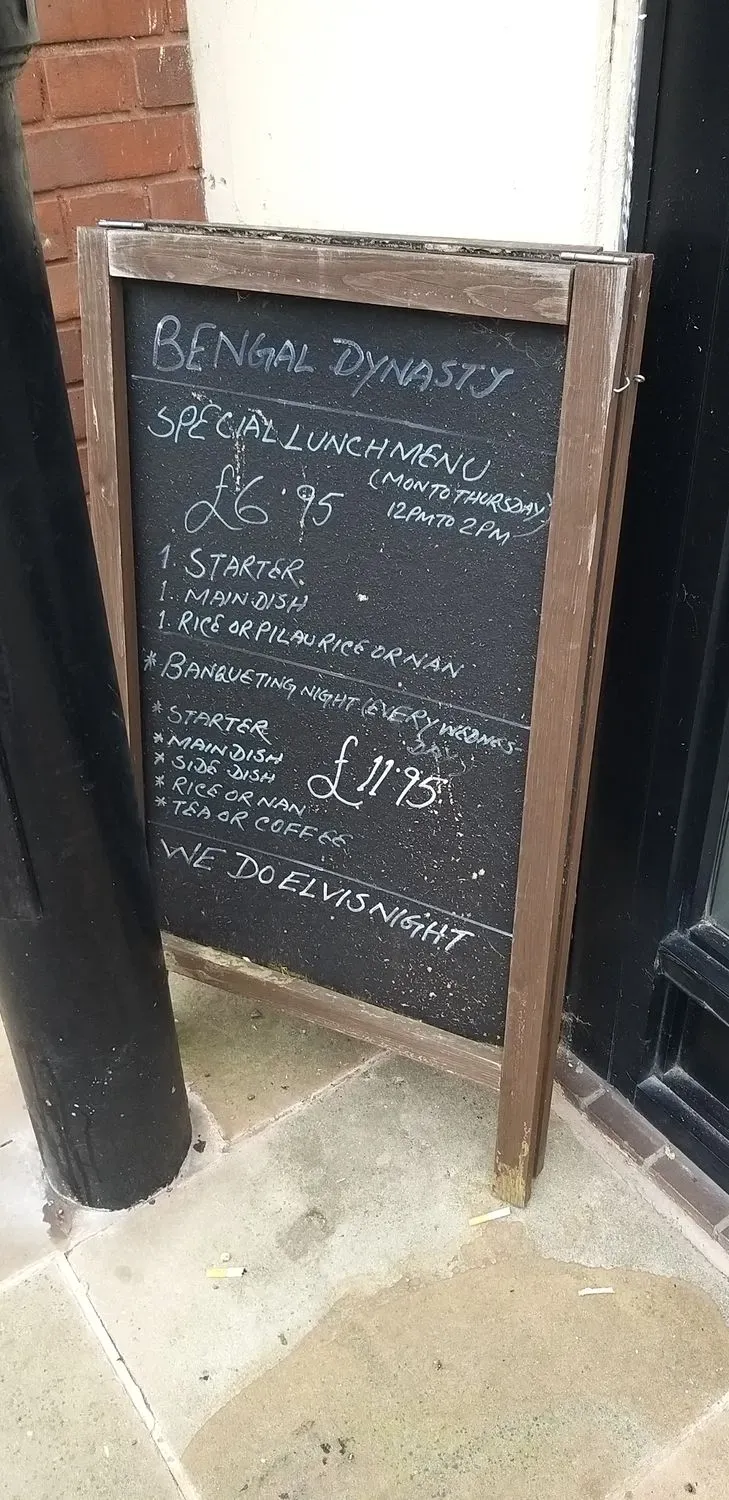 BENGAL DYNASTY
SPECIAL LUNCH MENU
(MON TO THURSDAY)
£6.95
12PM TO 2PM
1. STARTER.
1. MAIN DISH
1. RICE OR PILAU RICE OR NAN
* BANQUETING NIGHT (EVERY WEDNES-
DAY)
* STARTER
* MAIN DISH
* SIDE DISH
£11.95
* RICE OR NAN
* TEA OR COFFEE
WE DO ELVIS NIGHT